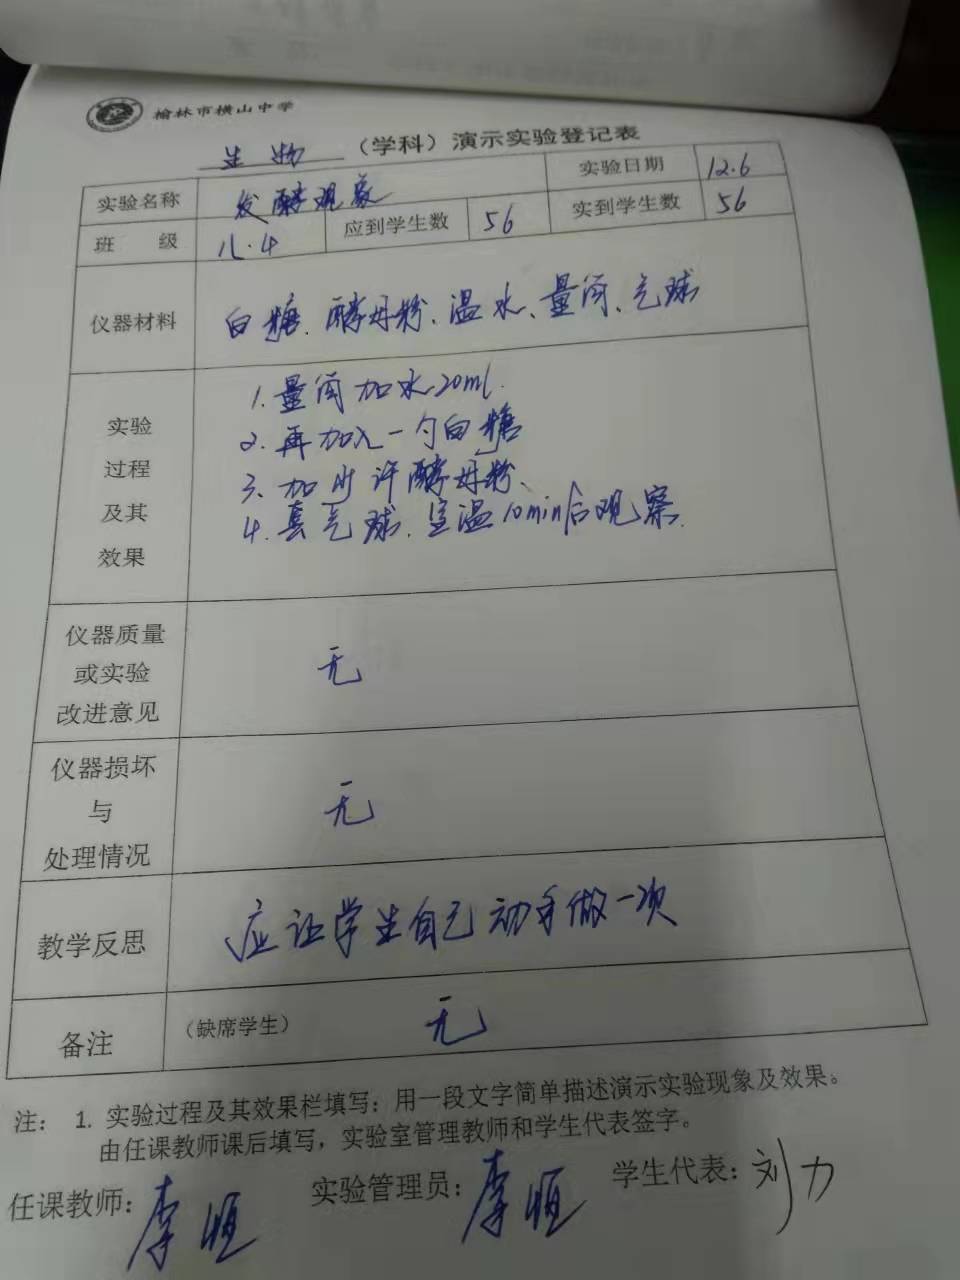 榆林市横山中学
生物（学科）演示实验登记表
实验名称 发酵现象 实验日期 12.6
班 级 八.4 应到学生数 56 实到学生数 56
仪器材料 白糖、酵母粉、温水、量筒、气球
实验过程及其效果
1.量筒加水20ml.
2.再加入一勺白糖
3、加少许酵母粉、
4.套气球、室温10min后观察.
仪器质量或实验改进意见 无
仪器损坏与处理情况 无
教学反思 应让学生自己动手做一次
备注 （缺席学生） 无
注： 1. 实验过程及其效果栏填写：用一段文字简单描述演示实验现象及效果。
由任课教师课后填写，实验室管理教师和学生代表签字。
任课教师：李恒 实验管理员：李恒 学生代表：刘力